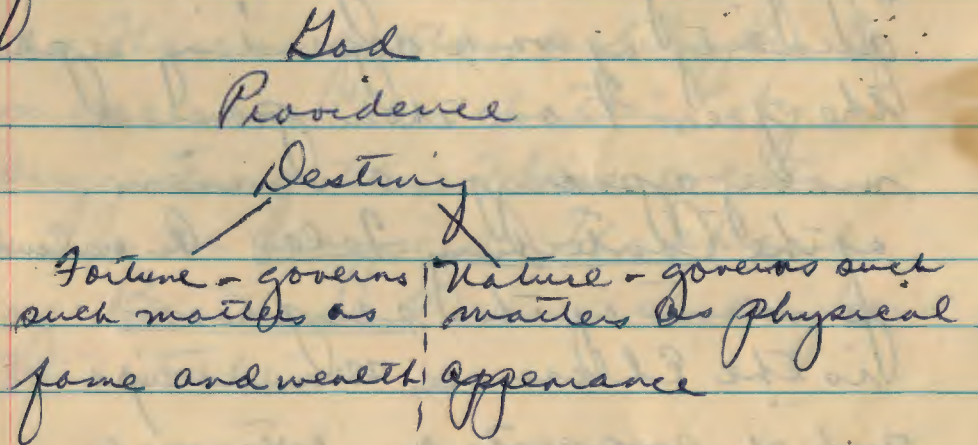 God
Providence
Destiny
Fortune - governs such matters as fame and wealth
Nature - governs such matters as physical appearance